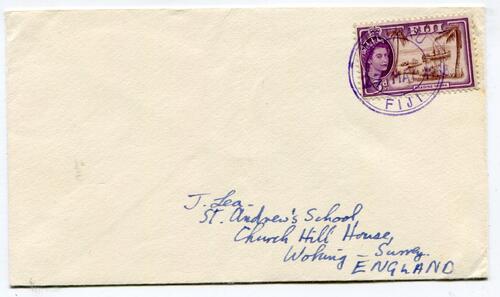 FIJI
MAR
FIJI
J. Lea.
St. Andrew's School,
Church Hill House,
Woking - Surrey.
ENGLAND